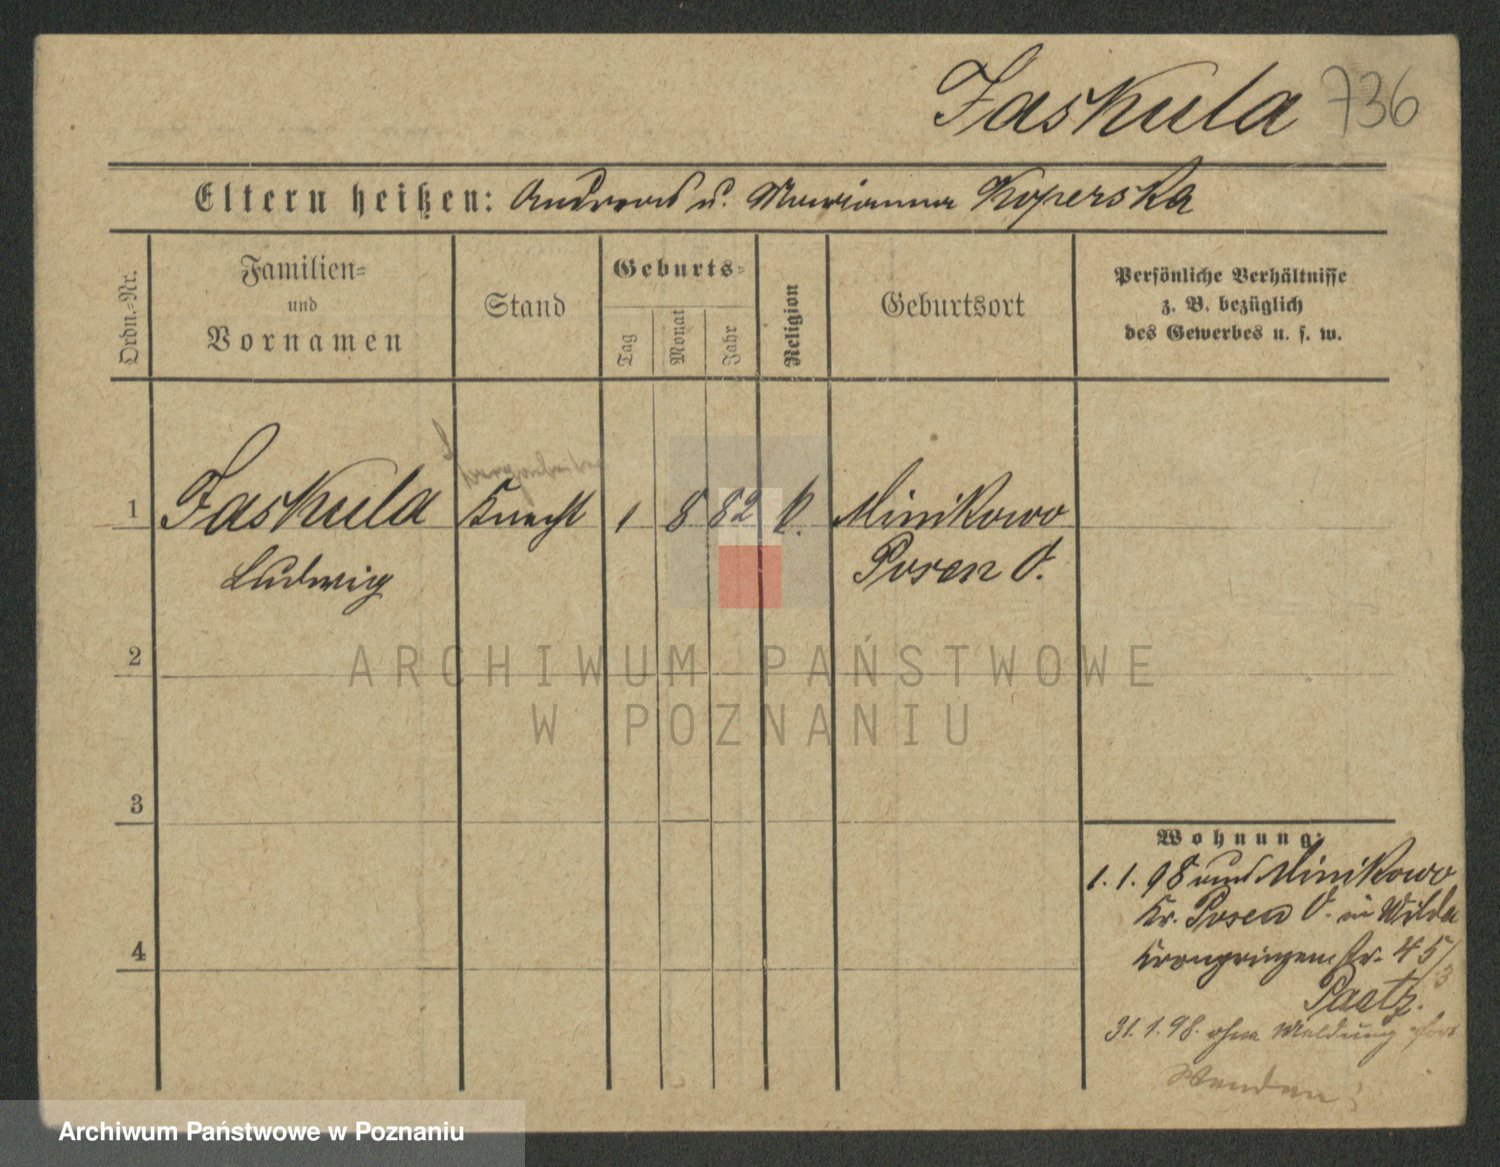 Jaskula 736
Eltern heißen: Andreas u. Marianna Koperska
Ordn.=Nr.
Familien=
und
Vornamen
Stand
Geburts=
Tag
Monat
Jahr
Religion
Geburtsort
Persönliche Verhältnisse
z. B. bezüglich
des Gewerbes u. s. w.
1 Jaskula Knecht 1 8 82 k. Minikowo
Ludwig Posen O.
2
3
4
Wohnung:
1. 1. 98 aus Minikowo
Kr. Posen O. in Wilda
Kronprinzenstr. 45/
3
Paetz.
31. 1. 98. ohne Meldung fort
Wenden!
ARCHIWUM PAŃSTWOWE
W POZNANIU
Archiwum Państwowe w Poznaniu